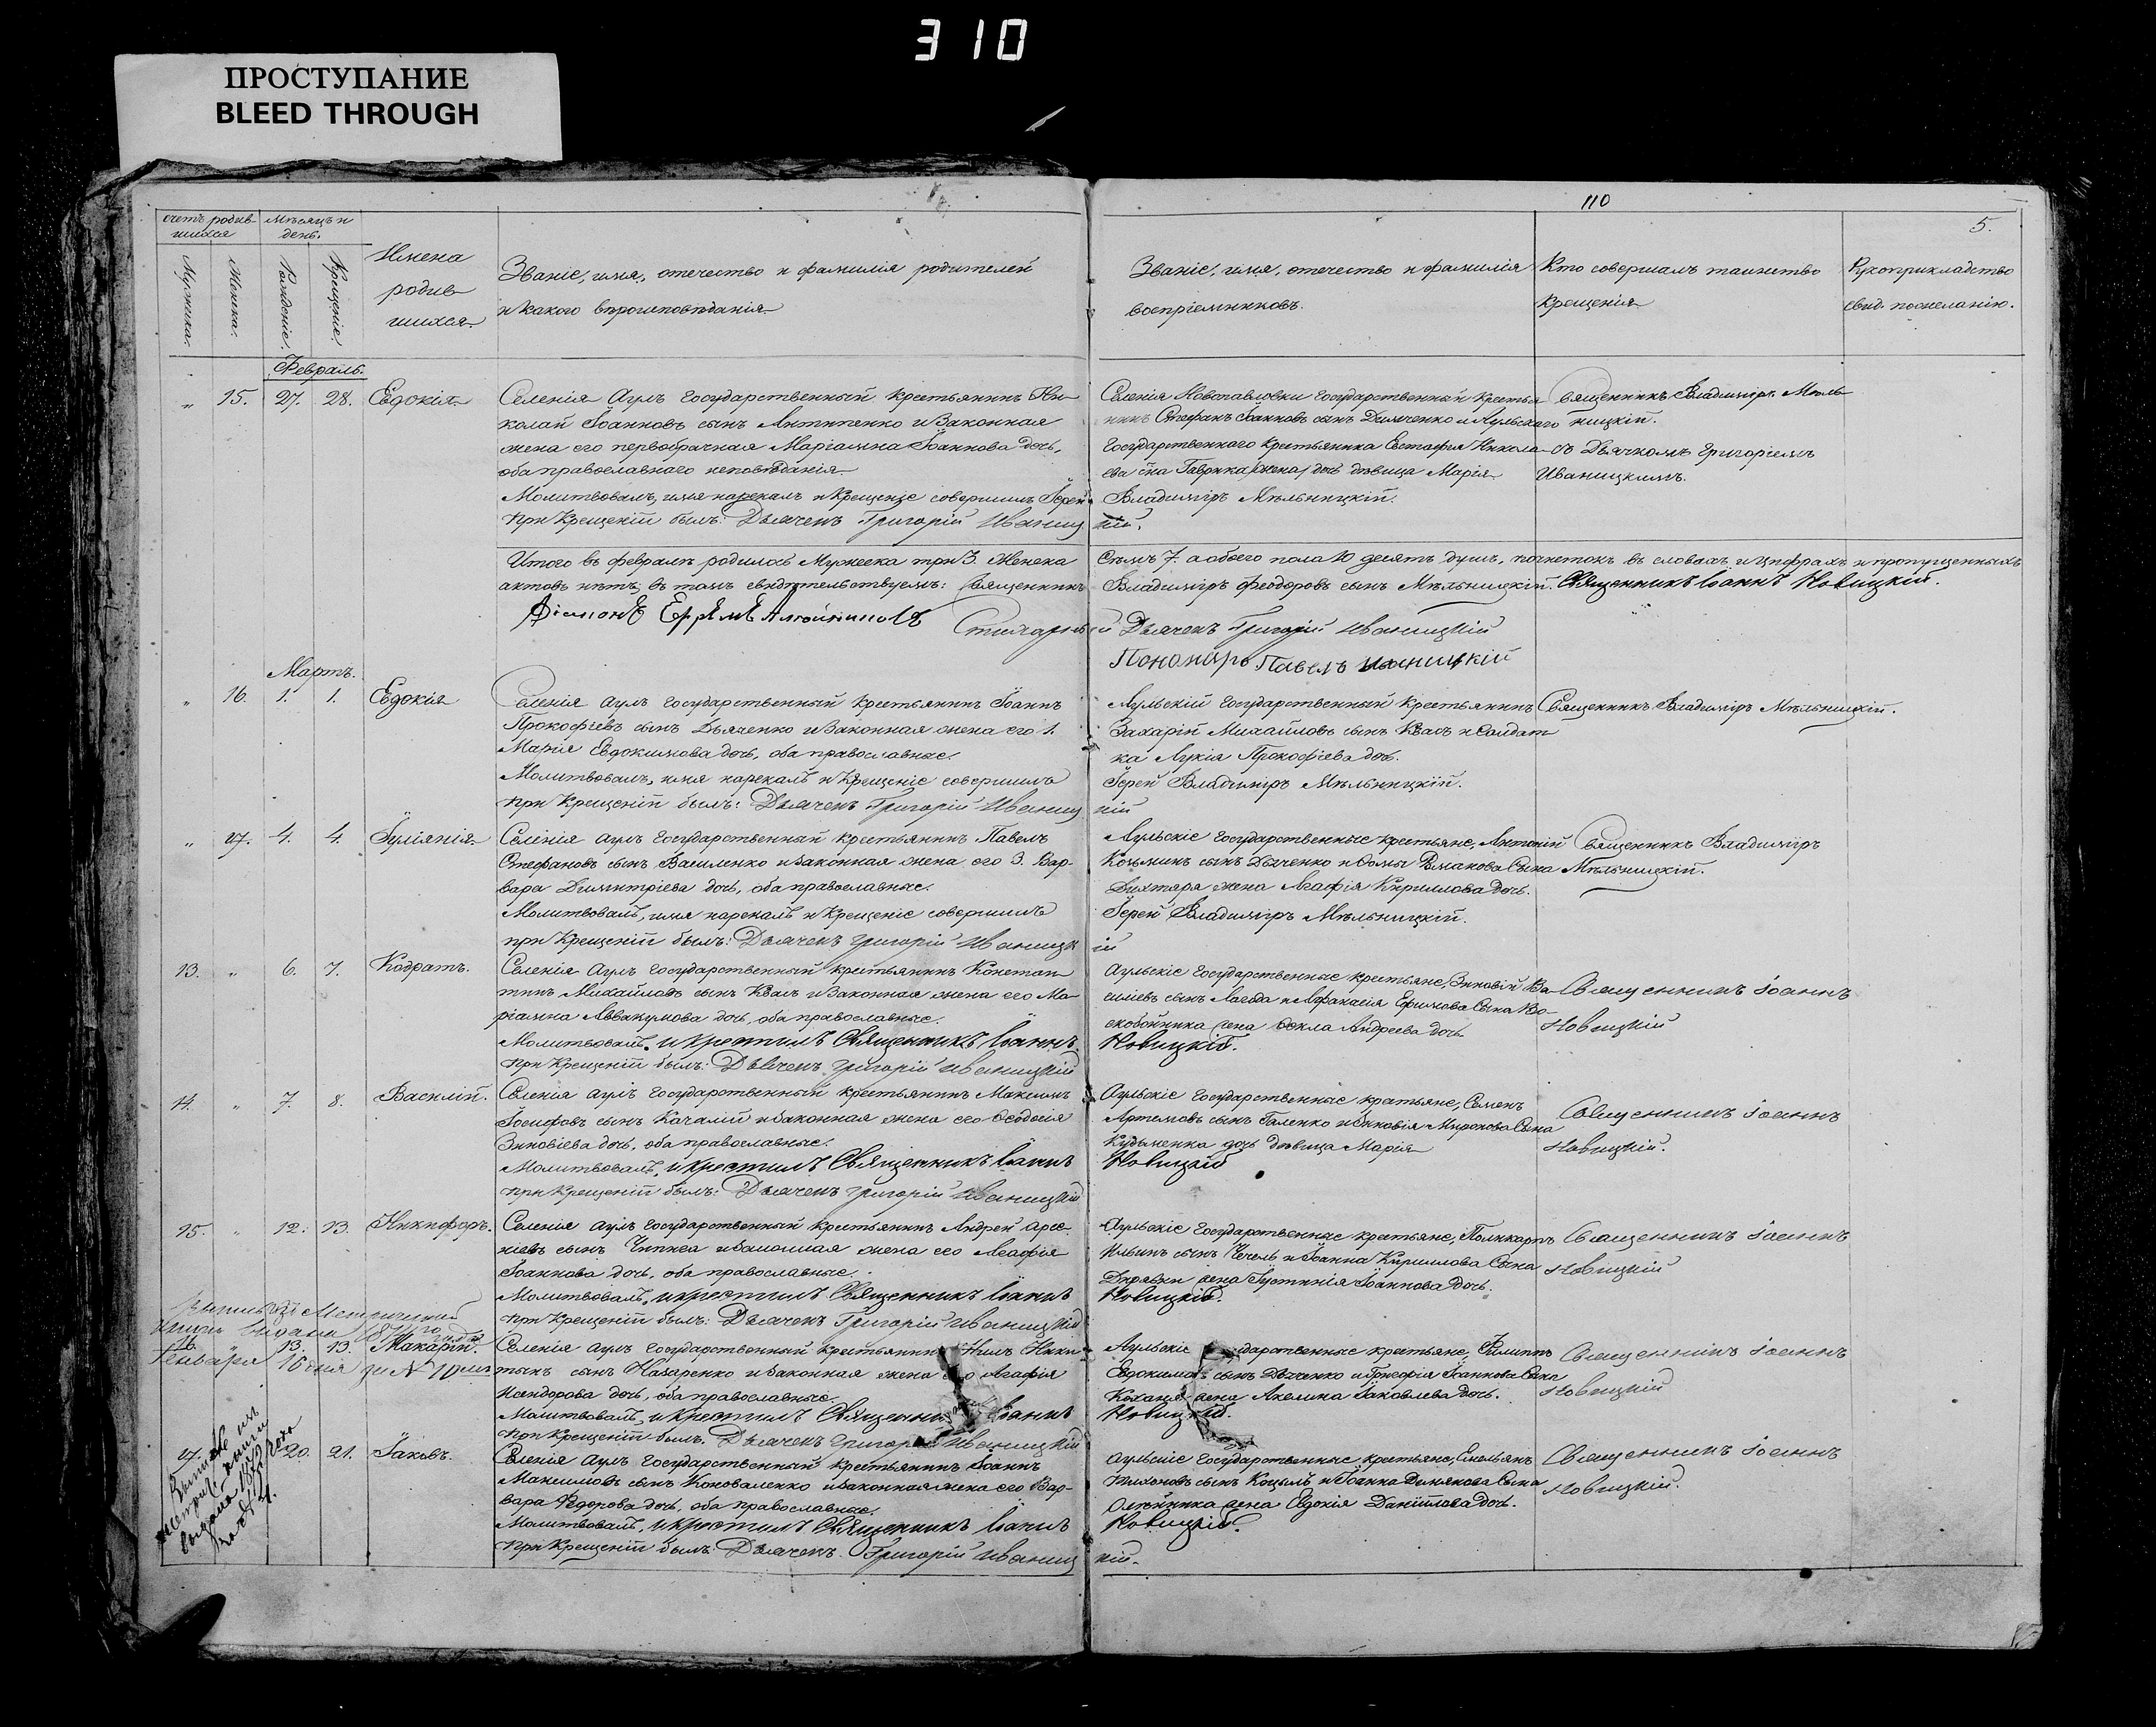 310
ПРОСТУПАНИЕ
BLEED THROUGH
110
5.
счетъ родив-
шихся
Мѣсяцъ и
день.
Мужеска.
Женска.
Рожденіе.
Крещеніе.
Имена
родив-
шихся
Званіе, имя, отечество и фамилія родителей
и какого вѣроисповѣданія
Званіе, имя, отечество и фамилія
воспріемниковъ.
Кто совершалъ таинство
крещенія
Рукоприкладство
свид. по желанію.
Февраль.
" 15. 27. 28. Евдокія
Селенія Аулъ государственный крестьянинъ Ни-
колай Іоанновъ сынъ Антипенко и законная
жена его первобрачная Маріамна Іоаннова дочь,
оба православнаго исповѣданія
Молитвовалъ, имя нарекалъ и крещеніе совершилъ Іерей
при Крещеніи былъ: Дьячекъ Григорій Иваниц
Селенія Новопавловки государственный крестья
нинъ Стефанъ Іоанновъ сынъ Дьяченко и Аульскаго
государственнаго крестьянина Евстафія Никола-
ева сна Гаврика дочь дѣвица Марія
Владиміръ Мѣльницкій.
кій.
Священникъ Владиміръ Мѣль-
ницкій.
съ Дьячкомъ Григоріемъ
Иваницкимъ.
Итого въ февралѣ родилось Мужеска три 3. Женска
актовъ нѣтъ; въ томъ свидѣтельствуемъ: Священникъ
семь 7. а обоего пола 10 десять душъ, почистокъ въ словахъ и цифрахъ и пропущенныхъ
Владиміръ Феодоровъ сынъ Мѣльницкій. Священникъ Іоаннъ Новицкій.
Дьячекъ Григорій Иваницкій
Пономарь Павелъ Иваницкій
Мартъ.
" 16. 1. 1. Евдокія
Селенія Аулъ государственный крестьянинъ Іоаннъ
Прокофіевъ сынъ Дьяченко и законная жена его 1.
Марія Евдокимова дочь, оба православные.
Молитвовалъ, имя нарекалъ и Крещеніе совершилъ
при Крещеніи былъ: Дьячекъ Григорій Иваниц
Аульскій государственный крестьянинъ
Захарій Михайловъ сынъ Квас и Солдат
ка Лукія Прокофіева дочь.
Іерей Владиміръ Мѣльницкій.
кій
Священникъ Владиміръ Мѣльницкій.
" 17. 4. 4. Іуліянія
Селенія Аулъ государственный крестьянинъ Павелъ
Стефановъ сынъ Василенко и законная жена его 3. Вар-
вара Димитріева дочь, оба православные.
Молитвовалъ, имя нарекалъ и Крещеніе совершилъ
при Крещеніи былъ: Дьячекъ Григорій Иваницк
Аульскіе государственные крестьяне, Антоній
Козьминъ сынъ Дьяченко и Фомы сына
Дихтяра жена Агафія Кириллова дочь.
Іерей Владиміръ Мѣльницкій.
ій
Священникъ Владиміръ
Мѣльницкій.
13. " 6. 7. Кодратъ.
Селенія Аулъ государственный крестьянинъ Констан
тинъ Михайловъ сынъ Квас и законная жена его Ма-
ріамна Аввакумова дочь, оба православные.
Молитвовалъ, и крестилъ Священникъ Іоаннъ
при Крещеніи былъ: Дьячекъ Григорій Иваницкій
Аульскіе государственные крестьяне, Зиновій Ва-
силіевъ сынъ Лагода и Афанасія Ефимова сына Во-
скобойника жена Фекла Андреева дочь
Новицкій.
Священникъ Іоаннъ
Новицкій
14. " 7. 8. Василій.
Селенія Аулъ государственный крестьянинъ Максимъ
Іосифовъ сынъ Качалій и законная жена его Феодосія
Зиновіева дочь, оба православные.
Молитвовалъ, и крестилъ Священникъ Іоаннъ
при Крещеніи былъ: Дьячекъ Григорій Иваницкій
Аульскіе государственные крестьяне, Семенъ
Артемовъ сынъ Галенко и Зиновія Миронова сына
Кузьменка дочь дѣвица Марія
Новицкій
Священникъ Іоаннъ
Новицкій.
15. " 12. 13. Никифоръ.
Селенія Аулъ государственный крестьянинъ Андрей Арсе-
ніевъ сынъ Чипига и законная жена его Агафія
Іоаннова дочь, оба православные.
Молитвовалъ, и крестилъ Священникъ Іоаннъ
при Крещеніи былъ: Дьячекъ Григорій Иваницкій
Аульскіе государственные крестьяне, Поликарпъ
Ильинъ сынъ Чечель и Іоанна Кириллова сына
жена Іустинія Іоаннова дочь.
Новицкій.
Священникъ Іоаннъ
Новицкій
Выпись изъ Метрической
Книги выдана года
16. " 13. 13. Макарій.
Генваря 10 дня за №
Селенія Аулъ государственный крестьянинъ Нилъ Ники-
тинъ сынъ Назаренко и законная жена его Агафія
дочь, оба православные.
Молитвовалъ, и крестилъ Священникъ Іоаннъ
при Крещеніи былъ. Дьячекъ Григорій Иваницкій
Аульскіе государственные крестьяне, Филиппъ
Евдокимовъ сынъ Дьяченко и Григорія Іоаннова сына
Коханя жена Акелина Іаковлева дочь.
Новицкій.
Священникъ Іоаннъ
Новицкій
17. 20. 21. Іаковъ.
Селенія Аулъ государственный крестьянинъ Іоаннъ
Максимовъ сынъ Коноваленко и законная жена его Вар-
вара Федорова дочь, оба православные.
Молитвовалъ, и крестилъ Священникъ Іоаннъ
при Крещеніи былъ: Дьячекъ Григорій Иваниц
Аульскіе государственные крестьяне, Емельянъ
Тихоновъ сынъ и Іоанна Демянова сына
Олейника жена Евдокія Даніилова дочь.
Новицкій.
кій.
Священникъ Іоаннъ
Новицкій.